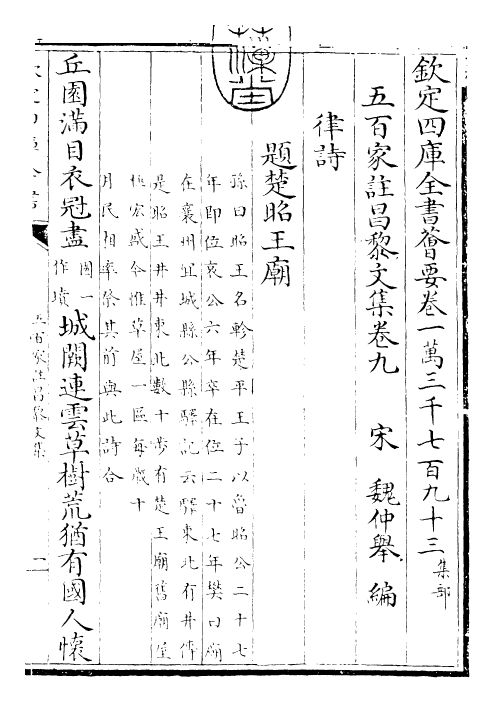 欽定四庫全書薈要卷一萬三千七百九十三集部
五百家註昌黎文集卷九　　宋　魏仲舉　編
律詩
題楚昭王廟
孫曰昭王名軫楚平王子以魯昭公二十七
年即位哀公六年卒在位二十七年樊曰廟
在襄州宜城縣公縣驛記云驛東北有井傳
是昭王井井東北數十步有楚王廟舊廟屋
極宏盛今惟草屋一區每歲十
月民相率祭其前與此詩合
丘園滿目衣冠盡園一作墳城闕連雲草樹荒猶有國人懷
五百家注昌黎文集